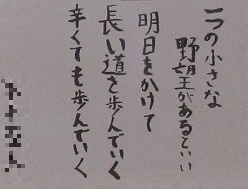 一つの小さな
野望があるといい
明日をかけて
長い道を歩んでいく
辛くても歩んでいく